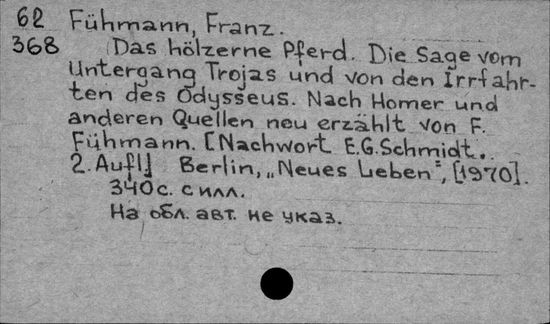 62 Fühmann, Franz.
368 Das hölzerne Pferd. Die Sage vom
Untergang Trojas und von den Irrfahr-
ten des Odysseus. Nach Homer und
anderen Quellen neu erzählt von F.
Fühmann. [Nachwort E.G.Schmidt..
2. Aufl.] Berlin, „Neues Leben", [1970].
340 с. с илл.
На обл. авт. не указ.